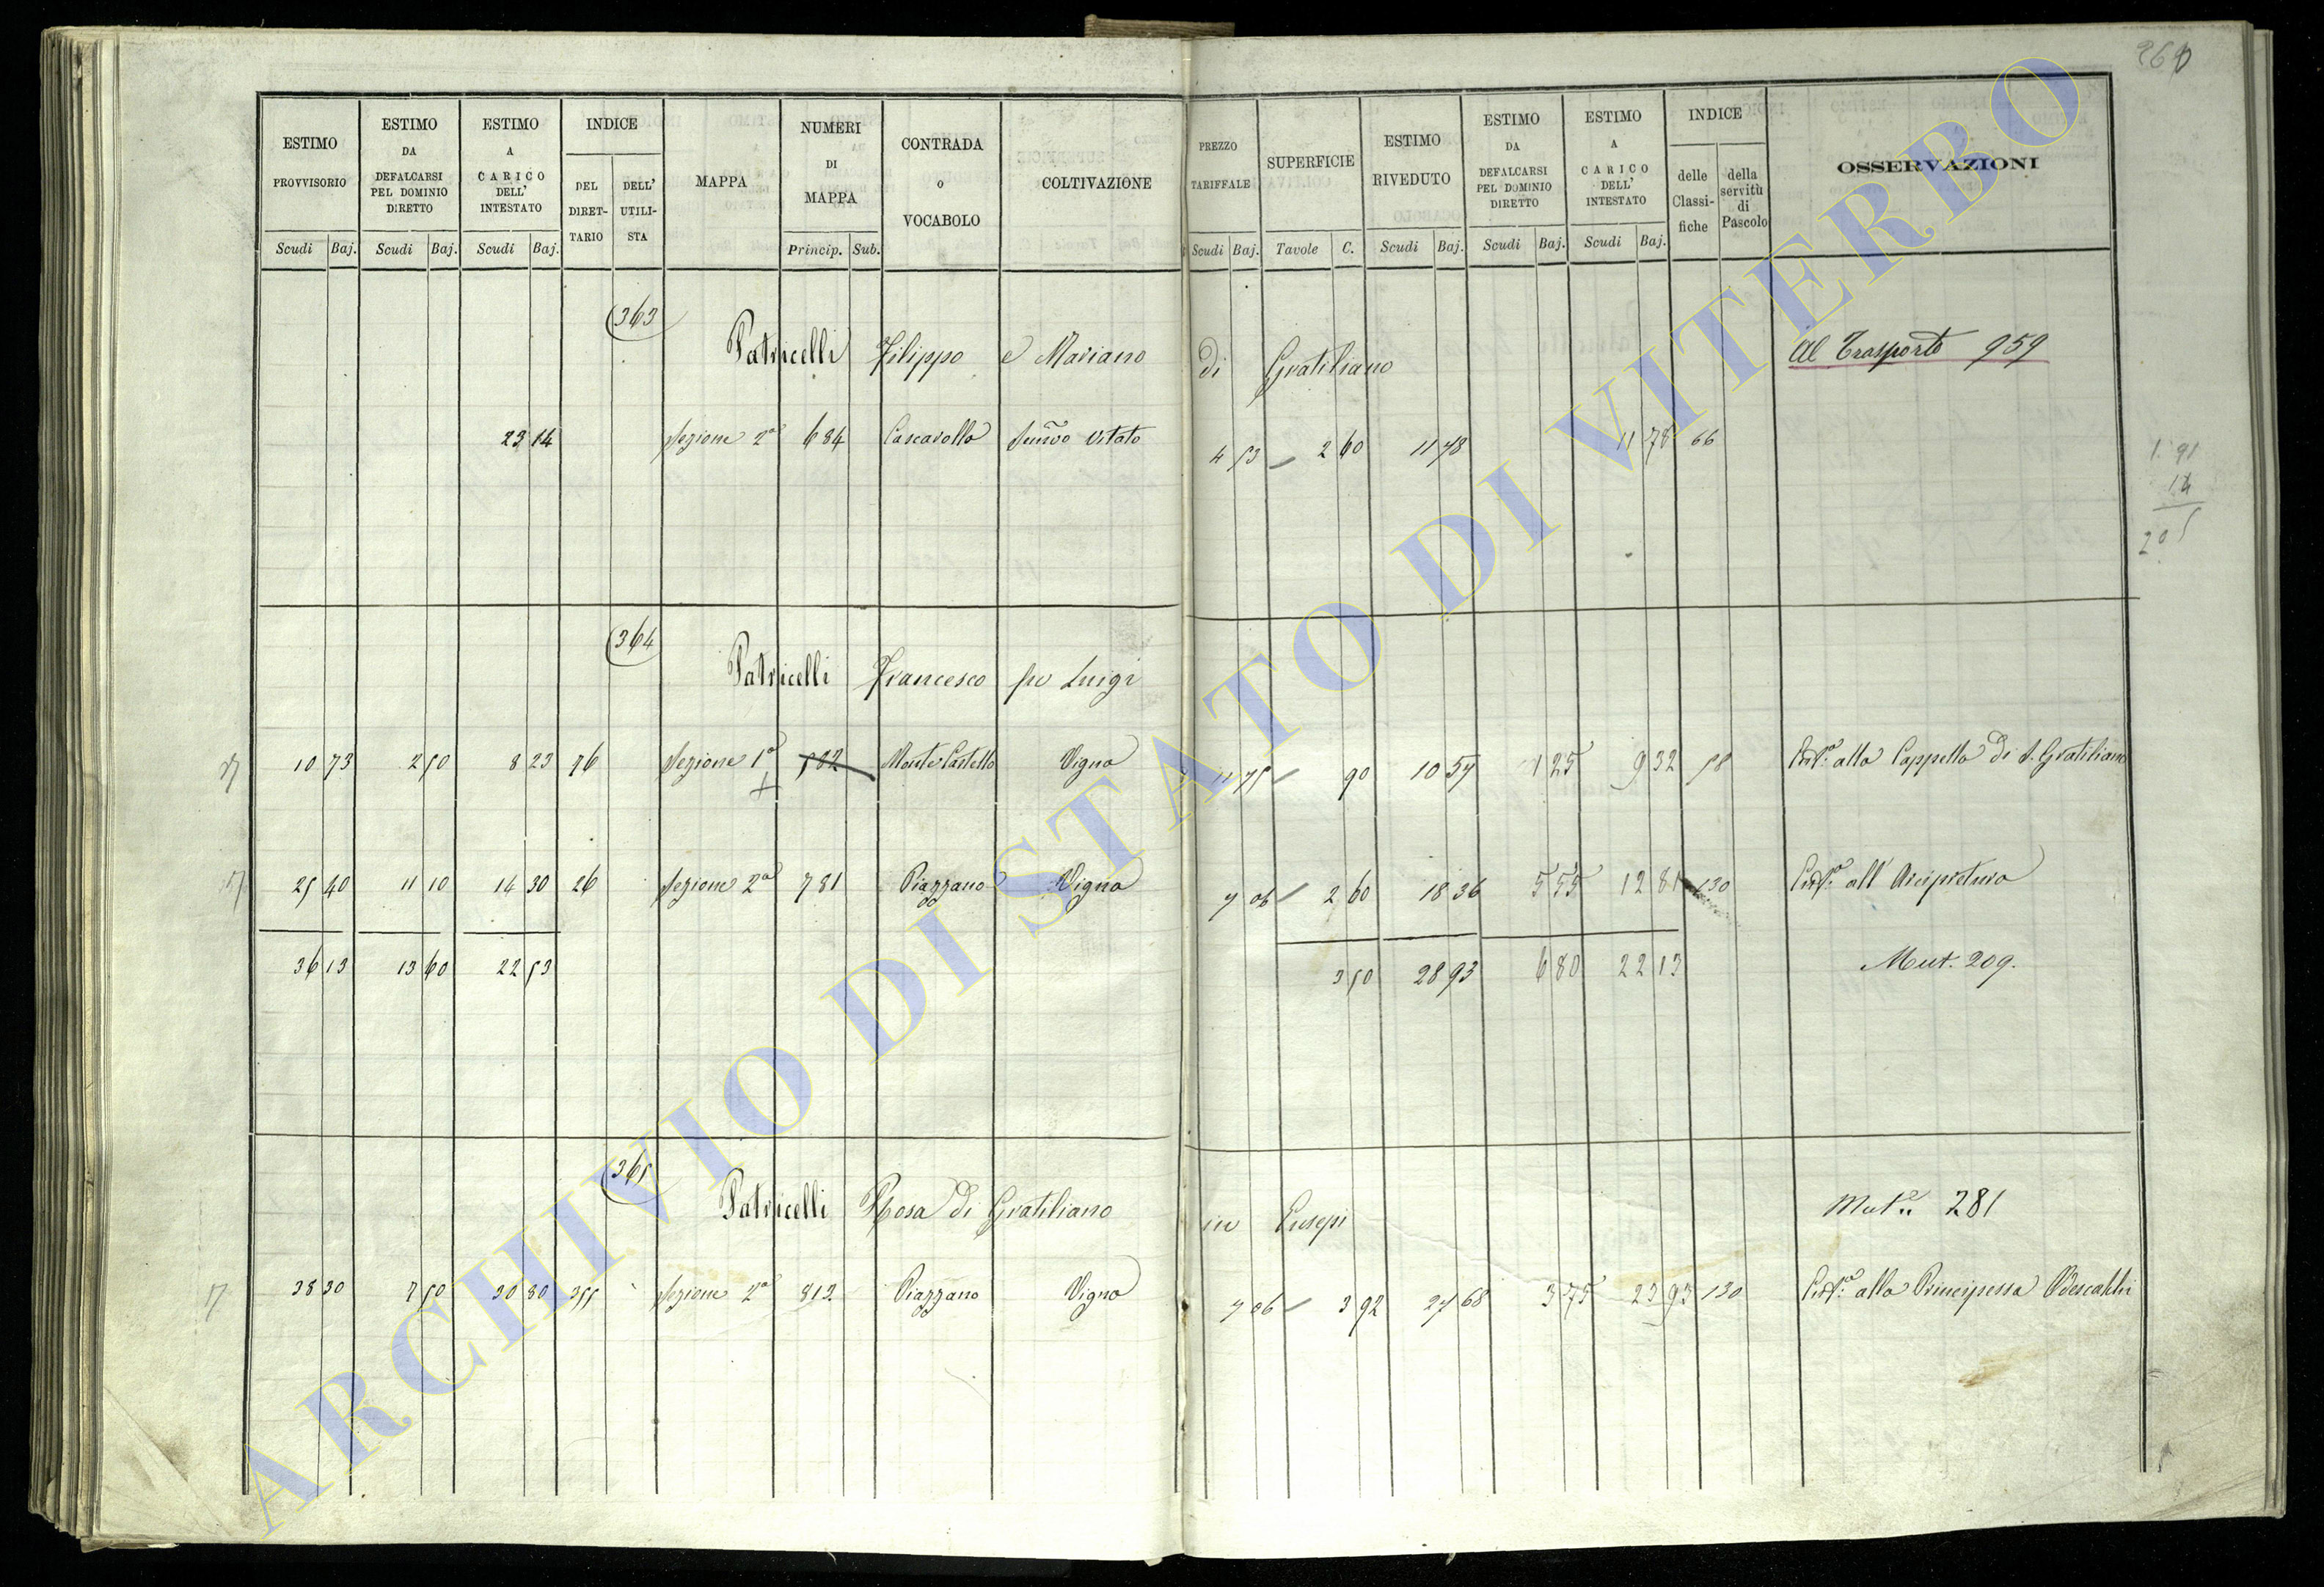 260
ESTIMO PROVVISORIO Scudi Baj.
ESTIMO DA DEFALCARSI PEL DOMINIO DIRETTO Scudi Baj.
ESTIMO A CARICO DELL' INTESTATO Scudi Baj.
INDICE DEL DIRET- TARIO DELL' UTILI- STA
MAPPA
NUMERI DI MAPPA Princip. Sub.
CONTRADA o VOCABOLO
COLTIVAZIONE
PREZZO TARIFFALE Scudi Baj.
SUPERFICIE Tavole C.
ESTIMO RIVEDUTO Scudi Baj.
ESTIMO DA DEFALCARSI PEL DOMINIO DIRETTO Scudi Baj.
ESTIMO A CARICO DELL' INTESTATO Scudi Baj.
INDICE delle Classi- fiche della servitù di Pascolo
OSSERVAZIONI
363
Patricelli Filippo e Mariano di Gratiliano Al Trasporto 959
23 14 Sezione 2a 684 Cascarolla Semvo vitato 4 53 2 60 11 78 11 78 66
1.91
14
205
364
Patricelli Francesco fu Luigi
10 73 2 50 8 23 76 Sezione 1a 582 Monte Castello Vigna 11 75 90 10 57 1 25 9 32 58 alla Cappella di S. Gratiliano
25 40 11 10 14 30 26 Sezione 2a 781 Piazzano Vigna 7 06 2 60 18 36 5 55 12 81 130 all' Arcipretura
36 13 13 60 22 53 3 50 28 93 6 80 22 13 Mut. 209.
365
Patricelli Rosa di Gratiliano in Eusepi Mut.e 281
38 30 7 50 30 80 355 Sezione 2a 812 Piazzano Vigna 7 06 3 92 27 68 3 75 23 93 130 alla Principessa Odescalchi
ARCHIVIO DI STATO DI VITERBO